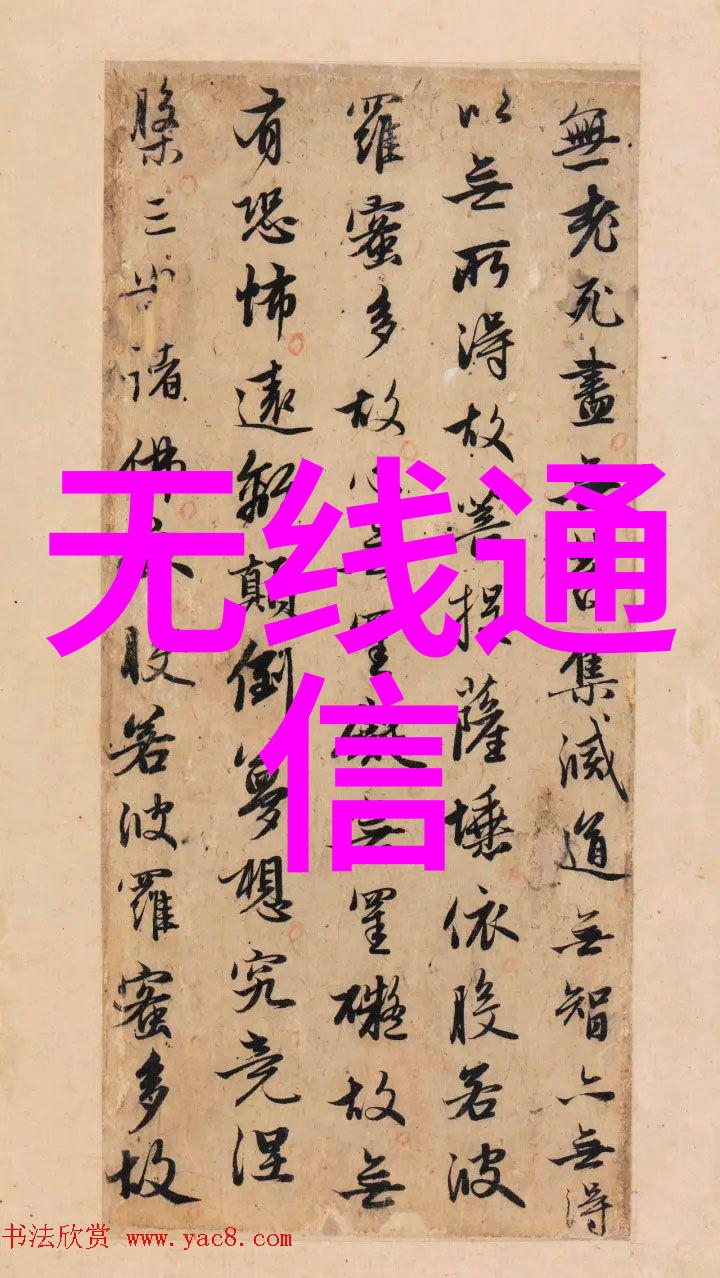 無老死盡無苦集滅道無智亦無得
以無所得故菩提薩埵依般若波
羅蜜多故心無罣礙無罣礙故無
有恐怖遠離顛倒夢想究竟涅
槃三世諸佛依般若波羅蜜多故
无线通
信
书法欣赏 www.yac8.com